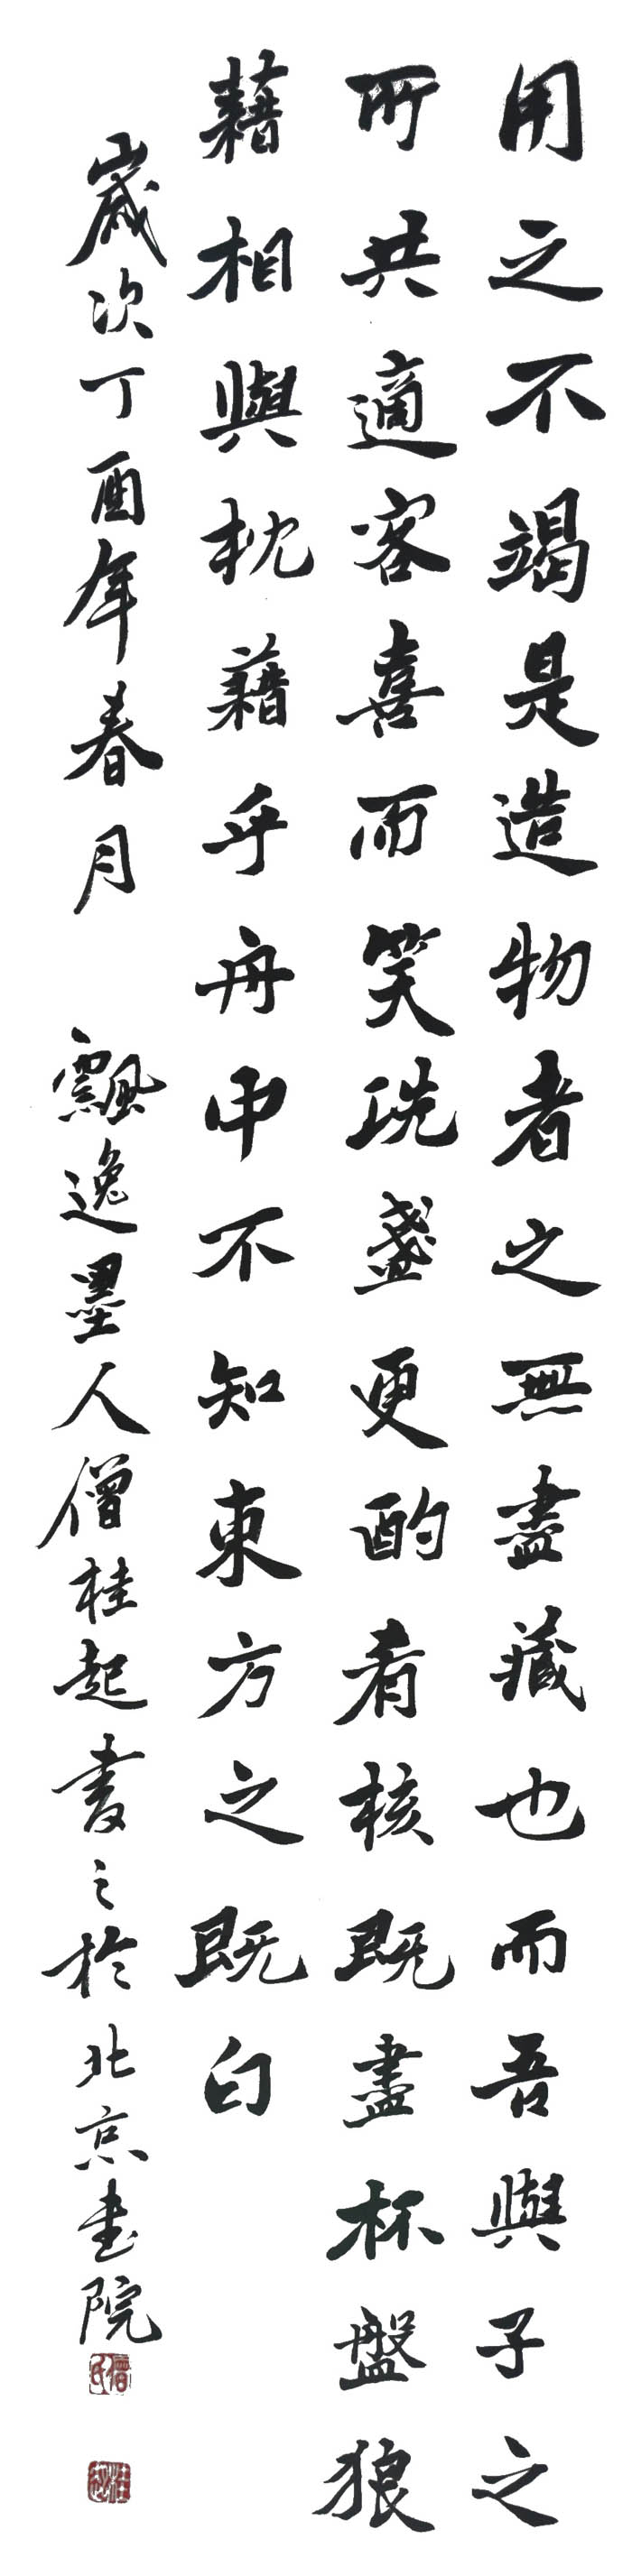 用之不竭是造物者之無盡藏也而吾與子之
所共適客喜而笑洗盞更酌肴核既盡杯盤狼
藉相與枕藉乎舟中不知東方之既白
歲次丁酉年春月 飄逸墨人僧桂起書之於北京書院
僧氏